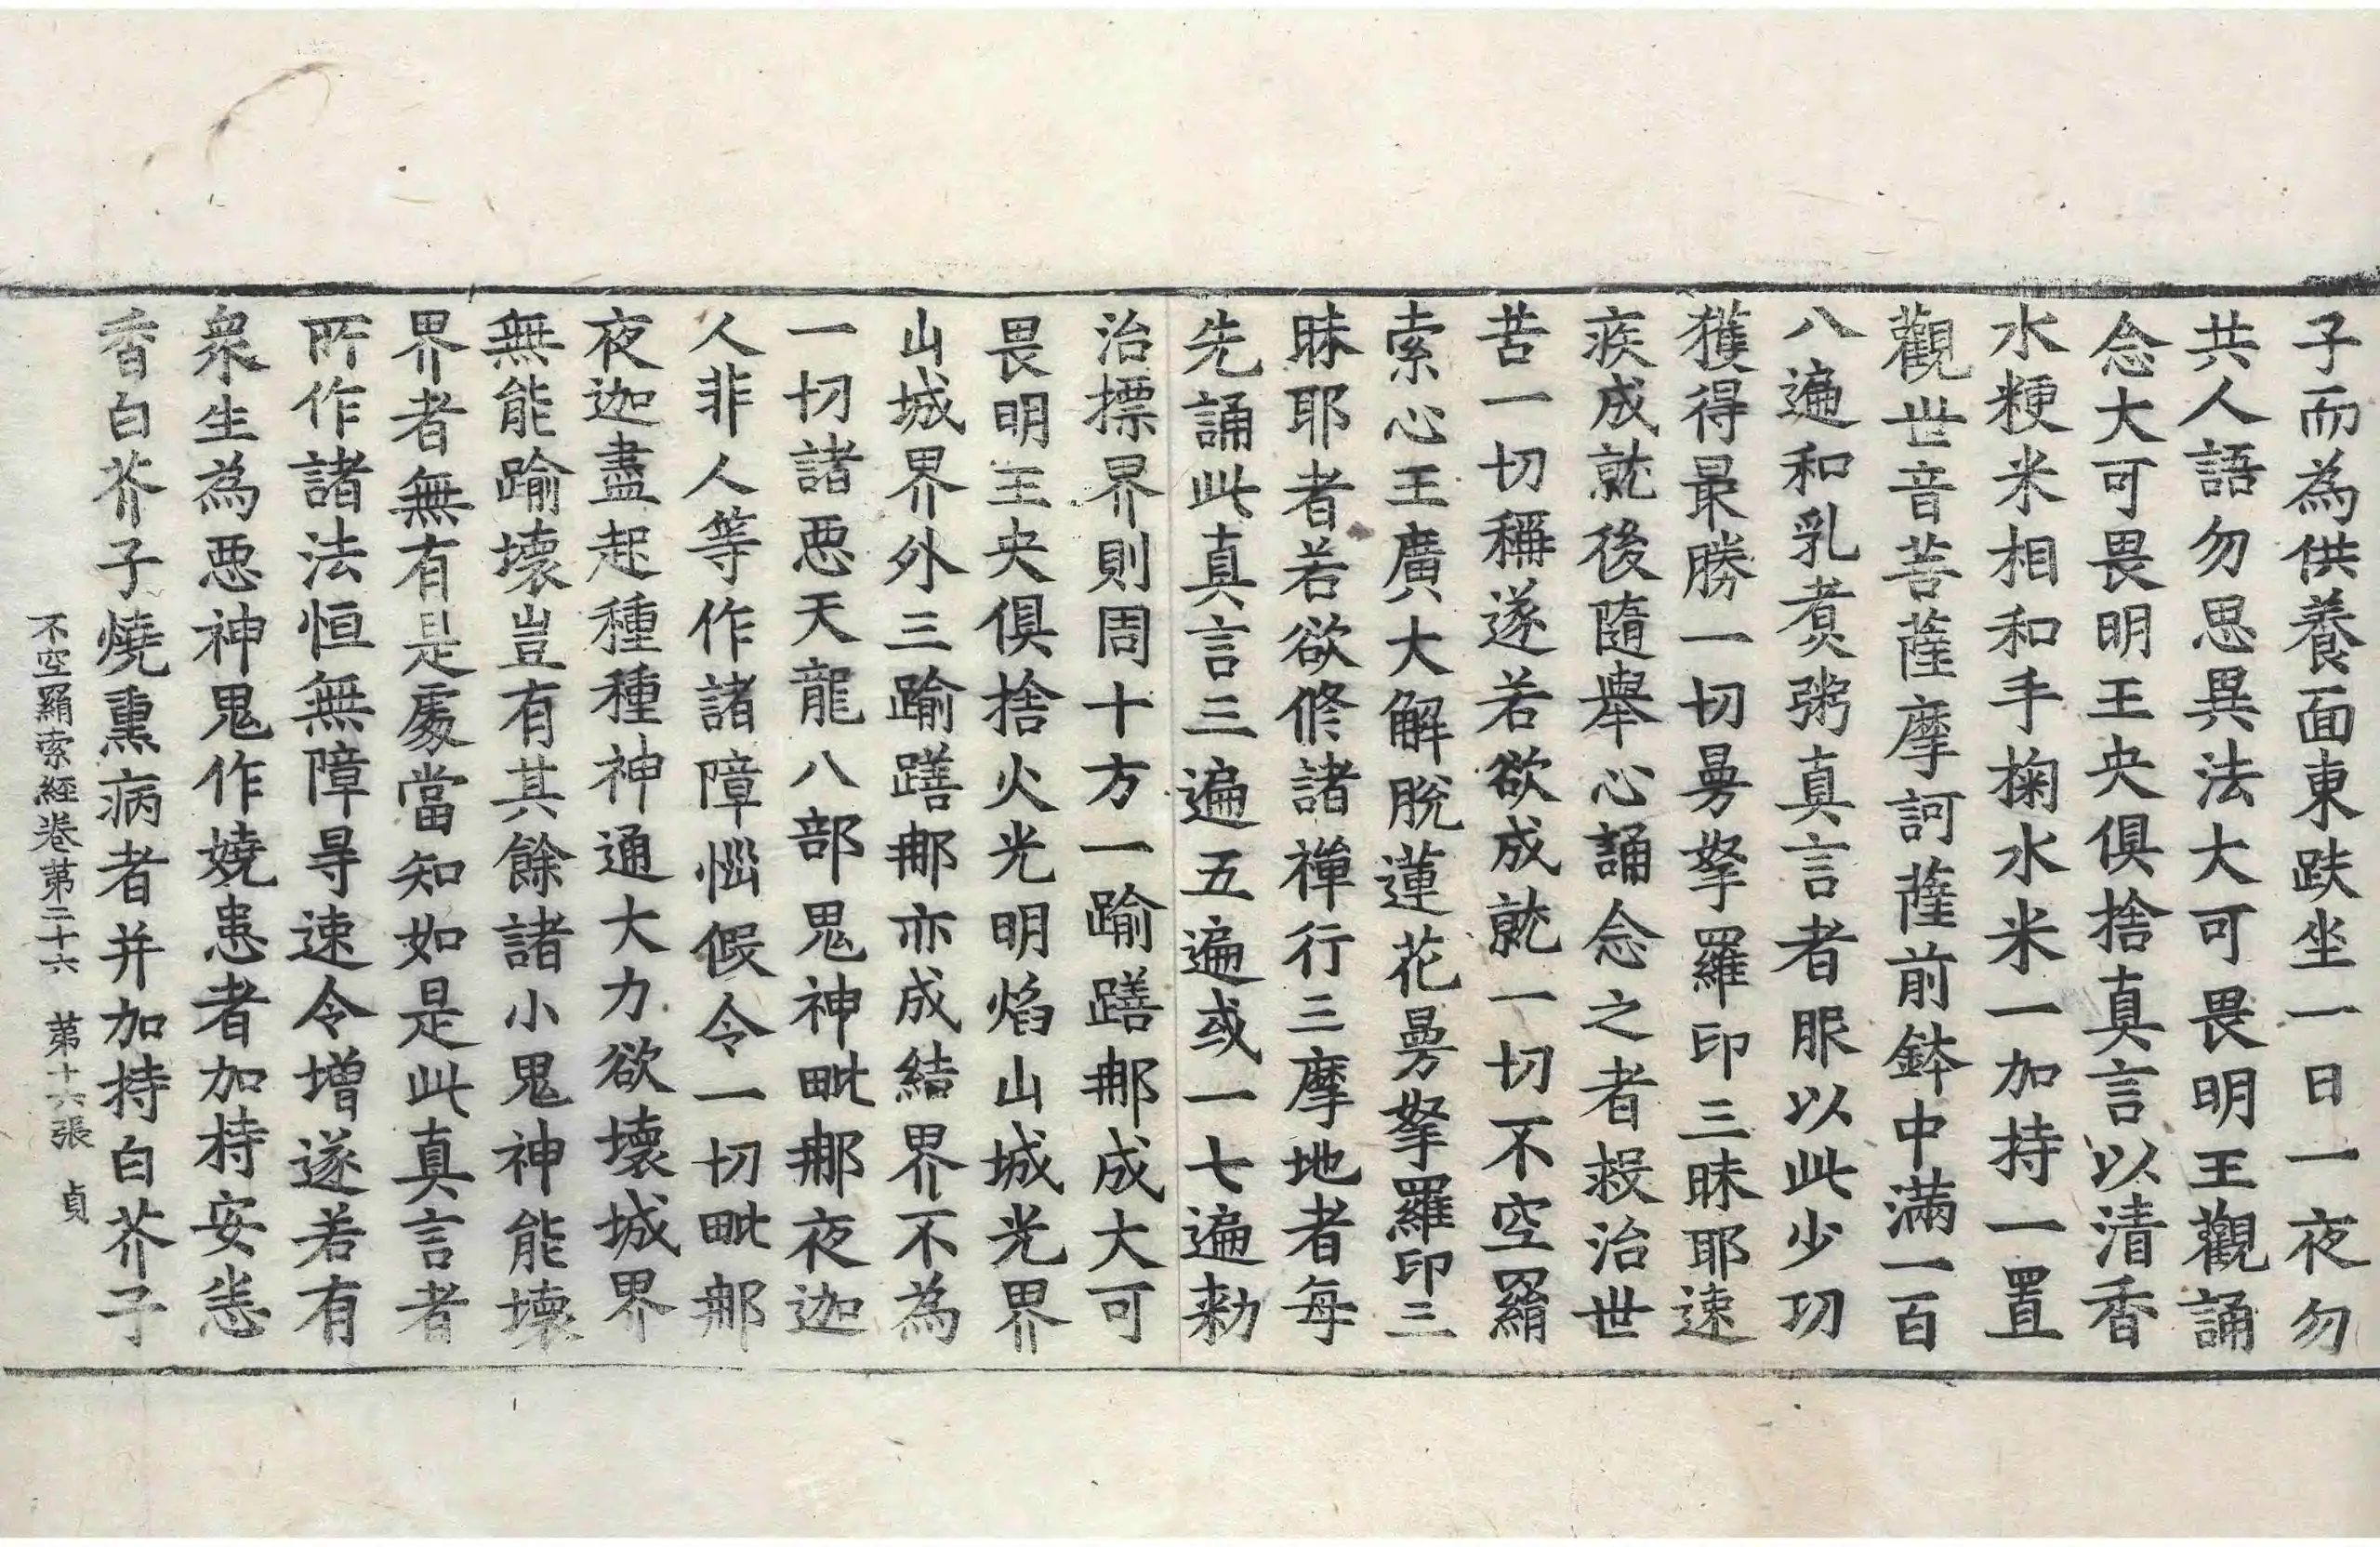 子而為供養面東趺坐一日一夜勿
共人語勿思異法大可畏明王觀誦
念大可畏明王央俱捨真言以清香
水粳米相和手掬水米一加持一置
觀世音菩薩摩訶薩前鉢中滿一百
八遍和乳煮粥真言者服以此少功
獲得最勝一切曼拏羅印三昧耶速
疾成就後隨舉心誦念之者救治世
苦一切稱遂若欲成就一切不空羂
索心王廣大解脫蓮花曼拏羅印三
昧耶者若欲修諸禪行三摩地者每
先誦此真言三遍五遍或一七遍勑
治摽界則周十方一踰膳那成大可
畏明王央俱捨火光明焰山城光界
山城界外三踰膳那亦成結界不為
一切諸惡天龍八部鬼神毗那夜迦
人非人等作諸障惱假令一切毗那
夜迦盡起種種神通大力欲壞城界
無能踰壞豈有其餘諸小鬼神能壞
界者無有是處當知如是此真言者
所作諸法恒無障㝵速令增遂若有
衆生為惡神鬼作嬈患者加持安悉
香白芥子燒熏病者并加持白芥子
不空羂索經卷第二十六 第十六張 貞